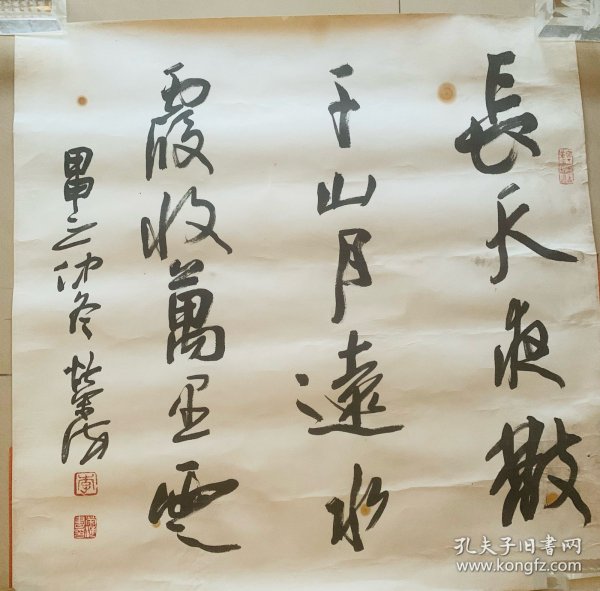 長天夜散
千山月遠水
霞收萬里雲
甲申之仲冬
李
孔夫子旧書网
www.kongfz.com